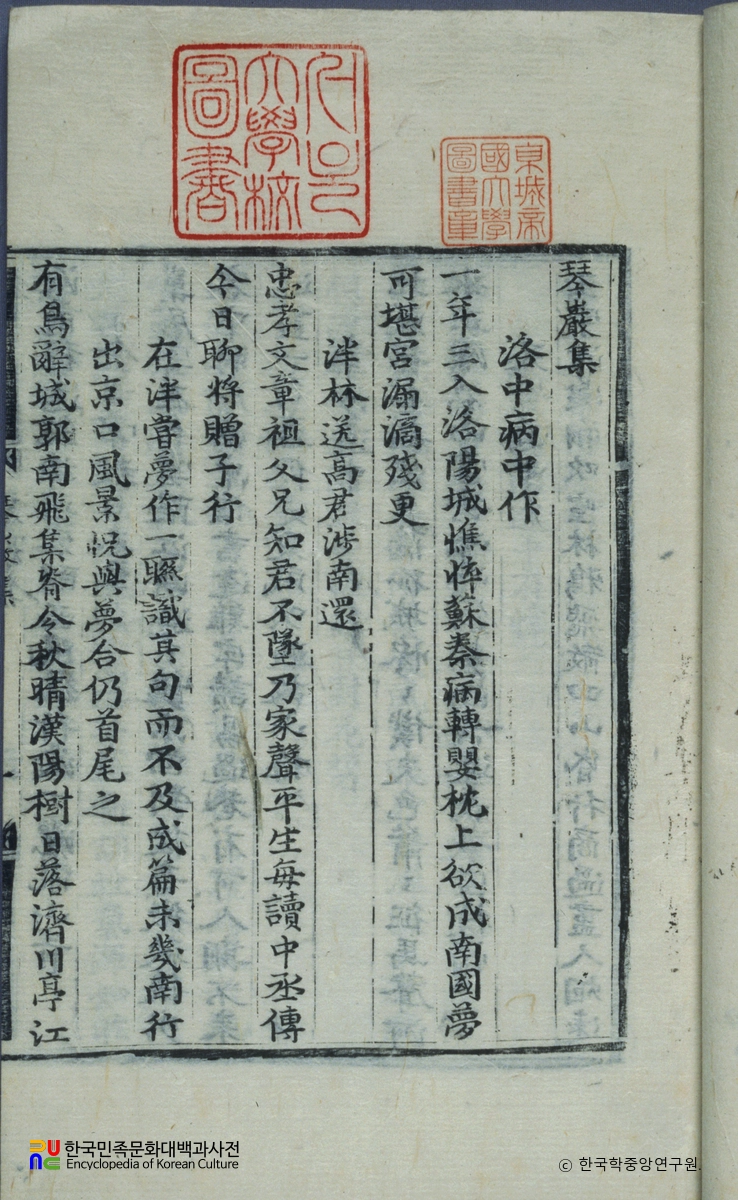 서울
大學校
圖書
京城帝
國大學
圖書章
琴巖集
洛中病中作
一年三入洛陽城憔悴蘇秦病轉嬰枕上欲成南國夢
可堪宮漏滴殘更
泮林送高君渉南還
忠孝文章祖父兄知君不墜乃家聲平生每讀中丞傳
今日聊將贈子行
在泮嘗夢作一聯識其句而不及成篇未幾南行
出京口風景怳與夢合仍首尾之
有鳥辭城郭南飛集脊令秋晴漢陽樹日落濟川亭江
한국민족문화대백과사전
Encyclopedia of Korean Culture
© 한국학중앙연구원.